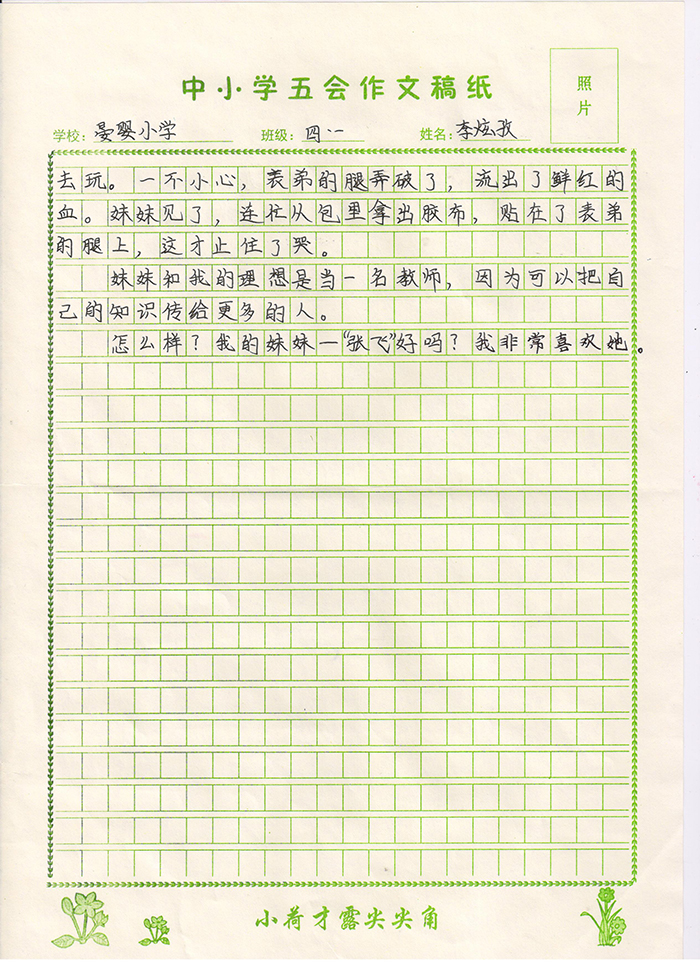 中小学五会作文稿纸
照片
学校：晏婴小学 班级：四·一 姓名：李炫孜
去玩。一不小心，表弟的腿弄破了，流出了鲜红的
血。妹妹见了，连忙从包里拿出胶布，贴在了表弟
的腿上，这才止住了哭。
妹妹和我的理想是当一名教师，因为可以把自
己的知识传给更多的人。
怎么样？我的妹妹—“张飞”好吗？我非常喜欢她。
小荷才露尖尖角